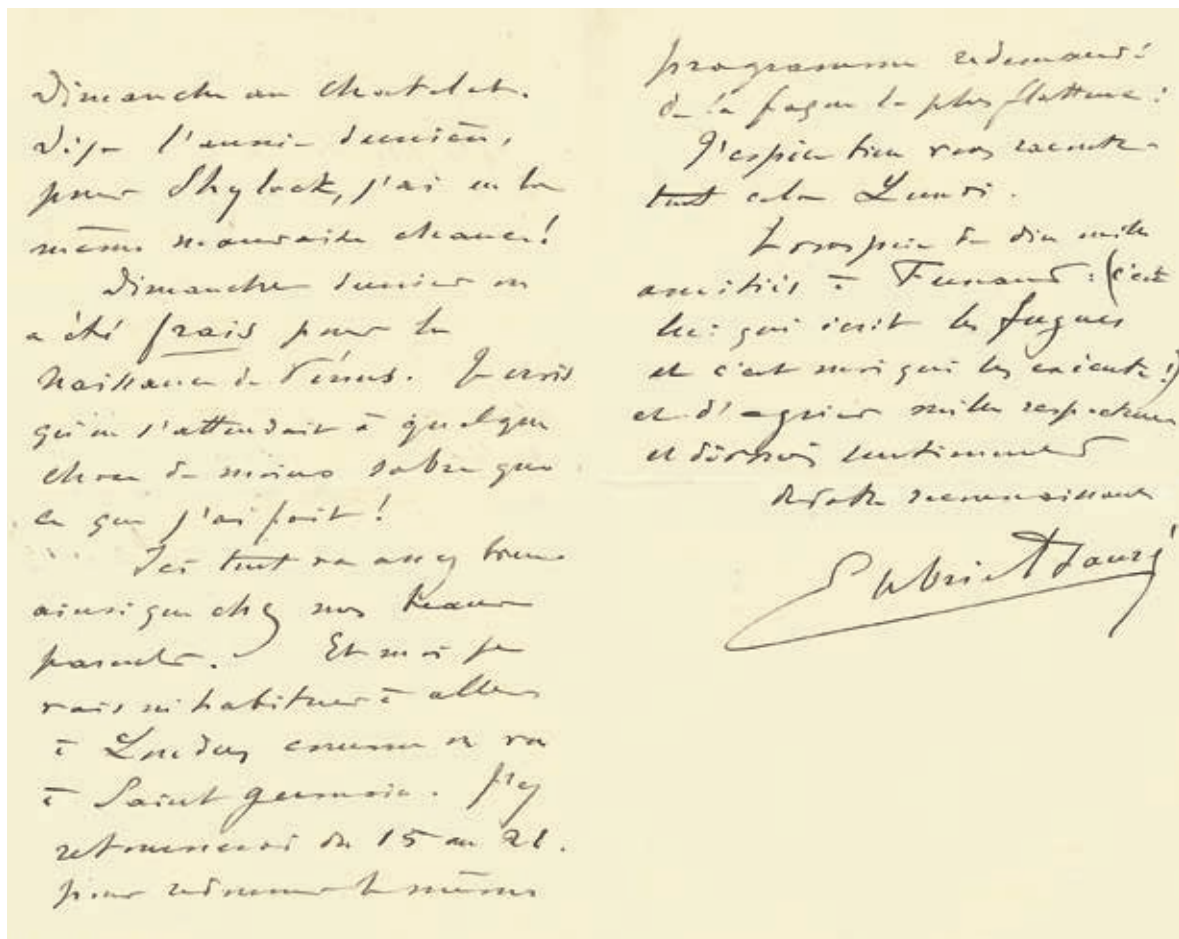 Dimanche au Chatelet.
Déjà l'année dernière,
pour Shylock, j'ai eu la
même mauvaise chance!
Dimanche dernier on
a été frais pour la
naissance de Vénus. Je crois
qu'on s'attendait à quelque
chose de moins sobre que
ce que j'ai fait!
Ici tout va assez bien
ainsi que chez nos beaux
parents. Et moi je
vais m'habituer à aller
à Londres comme on va
à Saint Germain. J'y
retournerai du 15 au 21.
pour redonner le même
programme redemandé
de la façon la plus flatteuse:
J'espère bien vous raconter
tout cela Lundi.
Je vous prie de dire mille
amitiés à Fernand: (c'est
lui qui écrit les fugues
et c'est moi qui les exécute!)
et d'agréer mille respectueux
et dévoués sentiments
de votre reconnaissant
Gabriel Fauré